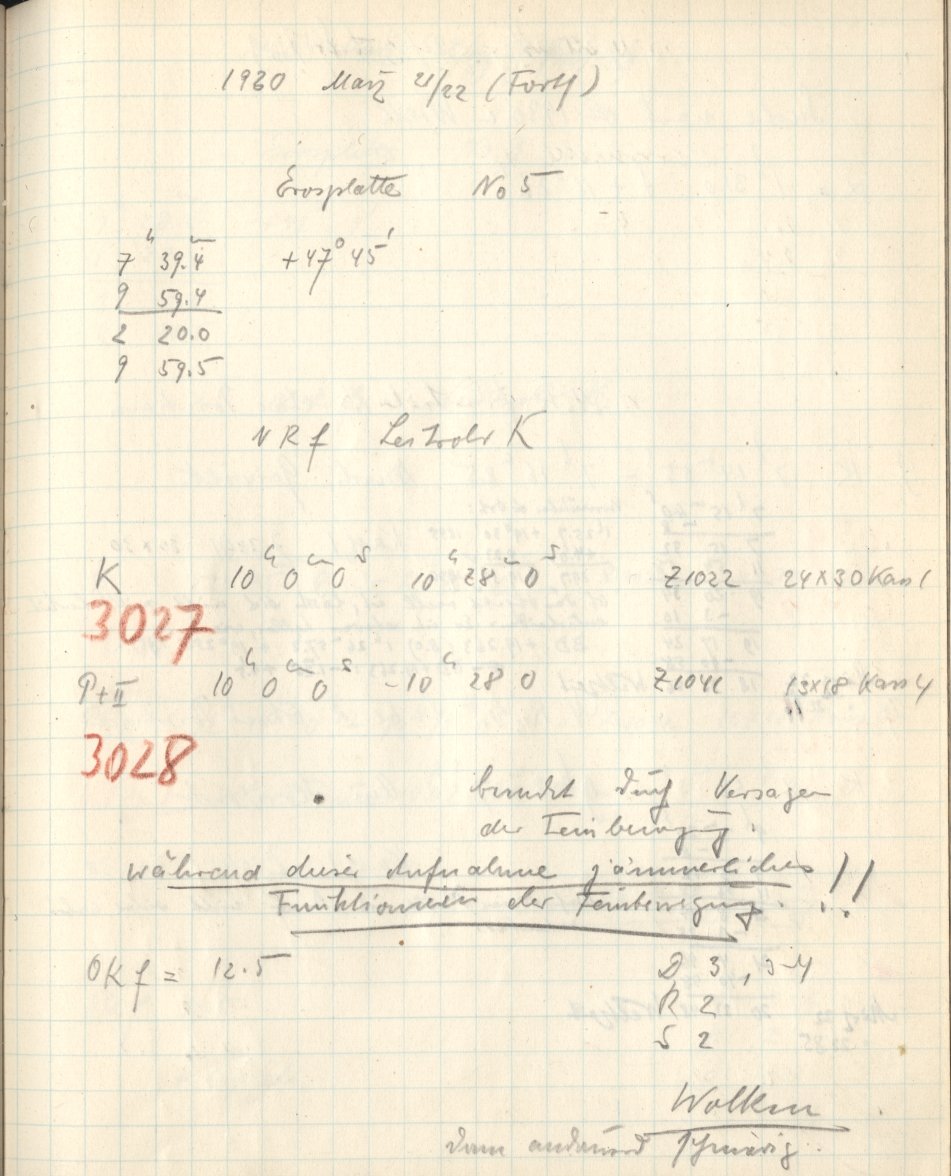 1930 März 21/22 (Forts)
Erosplatte No 5
7h 39.4m +47° 45'
9 59.4
2 20.0
9 59.5
NRf Leitrohr K
K 10h 0m 0s 10h 28m 0s Z1022 24x30 Kass 1
3027
P+II 10h 0m 0s - 10h 28 0 Z1041 13x18 Kass 4
3028
beendet durch Versagen
der Feinbewegung.
während dieser Aufnahme jämmerliches
Funktionieren der Feinbewegung. !!
OKf = 12.5 D 3, 3-4
R 2
S 2
Wolken
Dann andauernd schmierig.